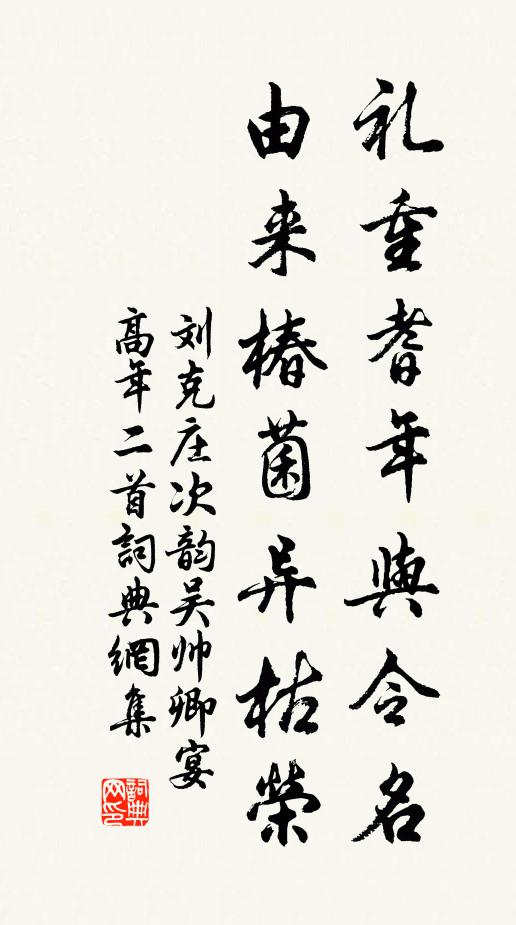 礼重耆年與令名
由来椿菌异枯榮
刘克庄次韵吴帅卿宴
高年二首詞典網集
詞典
网印